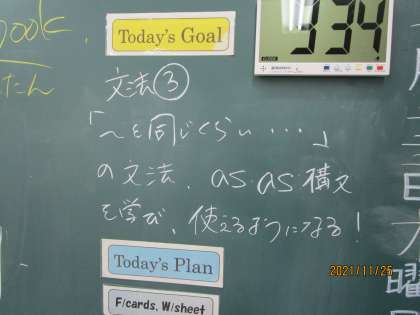 book.
たん
Today's Goal
334
文法③
「〜と同じくらい・・・」
の文法、as・as構文
を学び、使えるようになる!
Today's Plan
F/cards, W/sheet
月
日
木
曜
2021/11/25